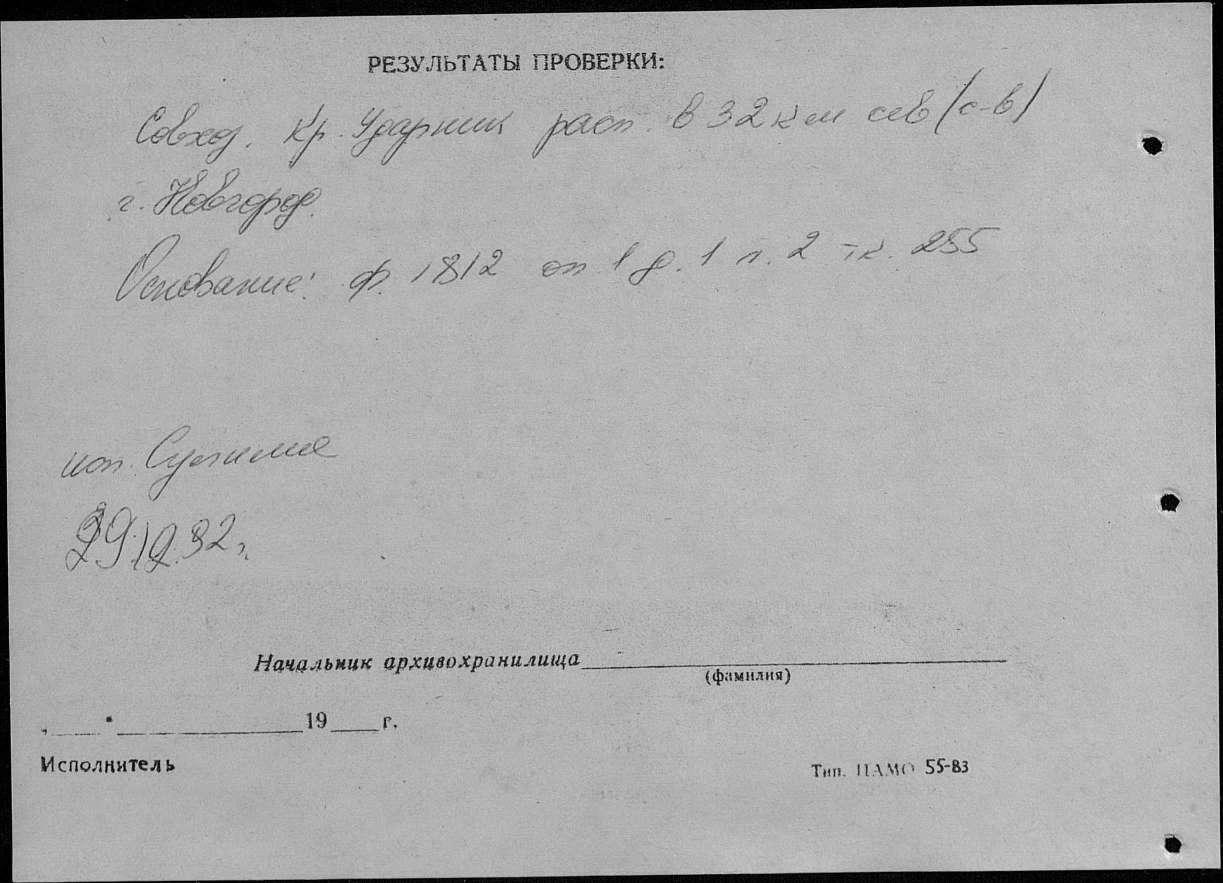 РЕЗУЛЬТАТЫ ПРОВЕРКИ:
Совхоз. Кр. Ударник расп. в 32 км сев (с-в)
г. Новгород.
Основание: ф. 1812 оп 1 д. 1 л. 2 -к. 255
исп.
Начальник архивохранилища
(фамилия)
„ " 19 г.
Исполнитель
Тип. ЦАМО 55-83